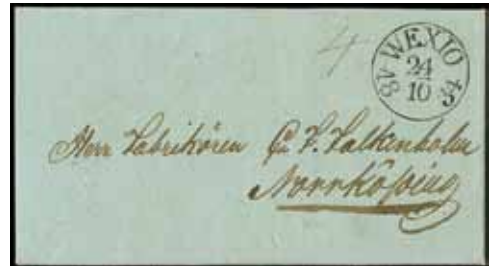 4
WEXIO
24
10
Herr Fabrikören C. F. Falkenholm
Norrköping